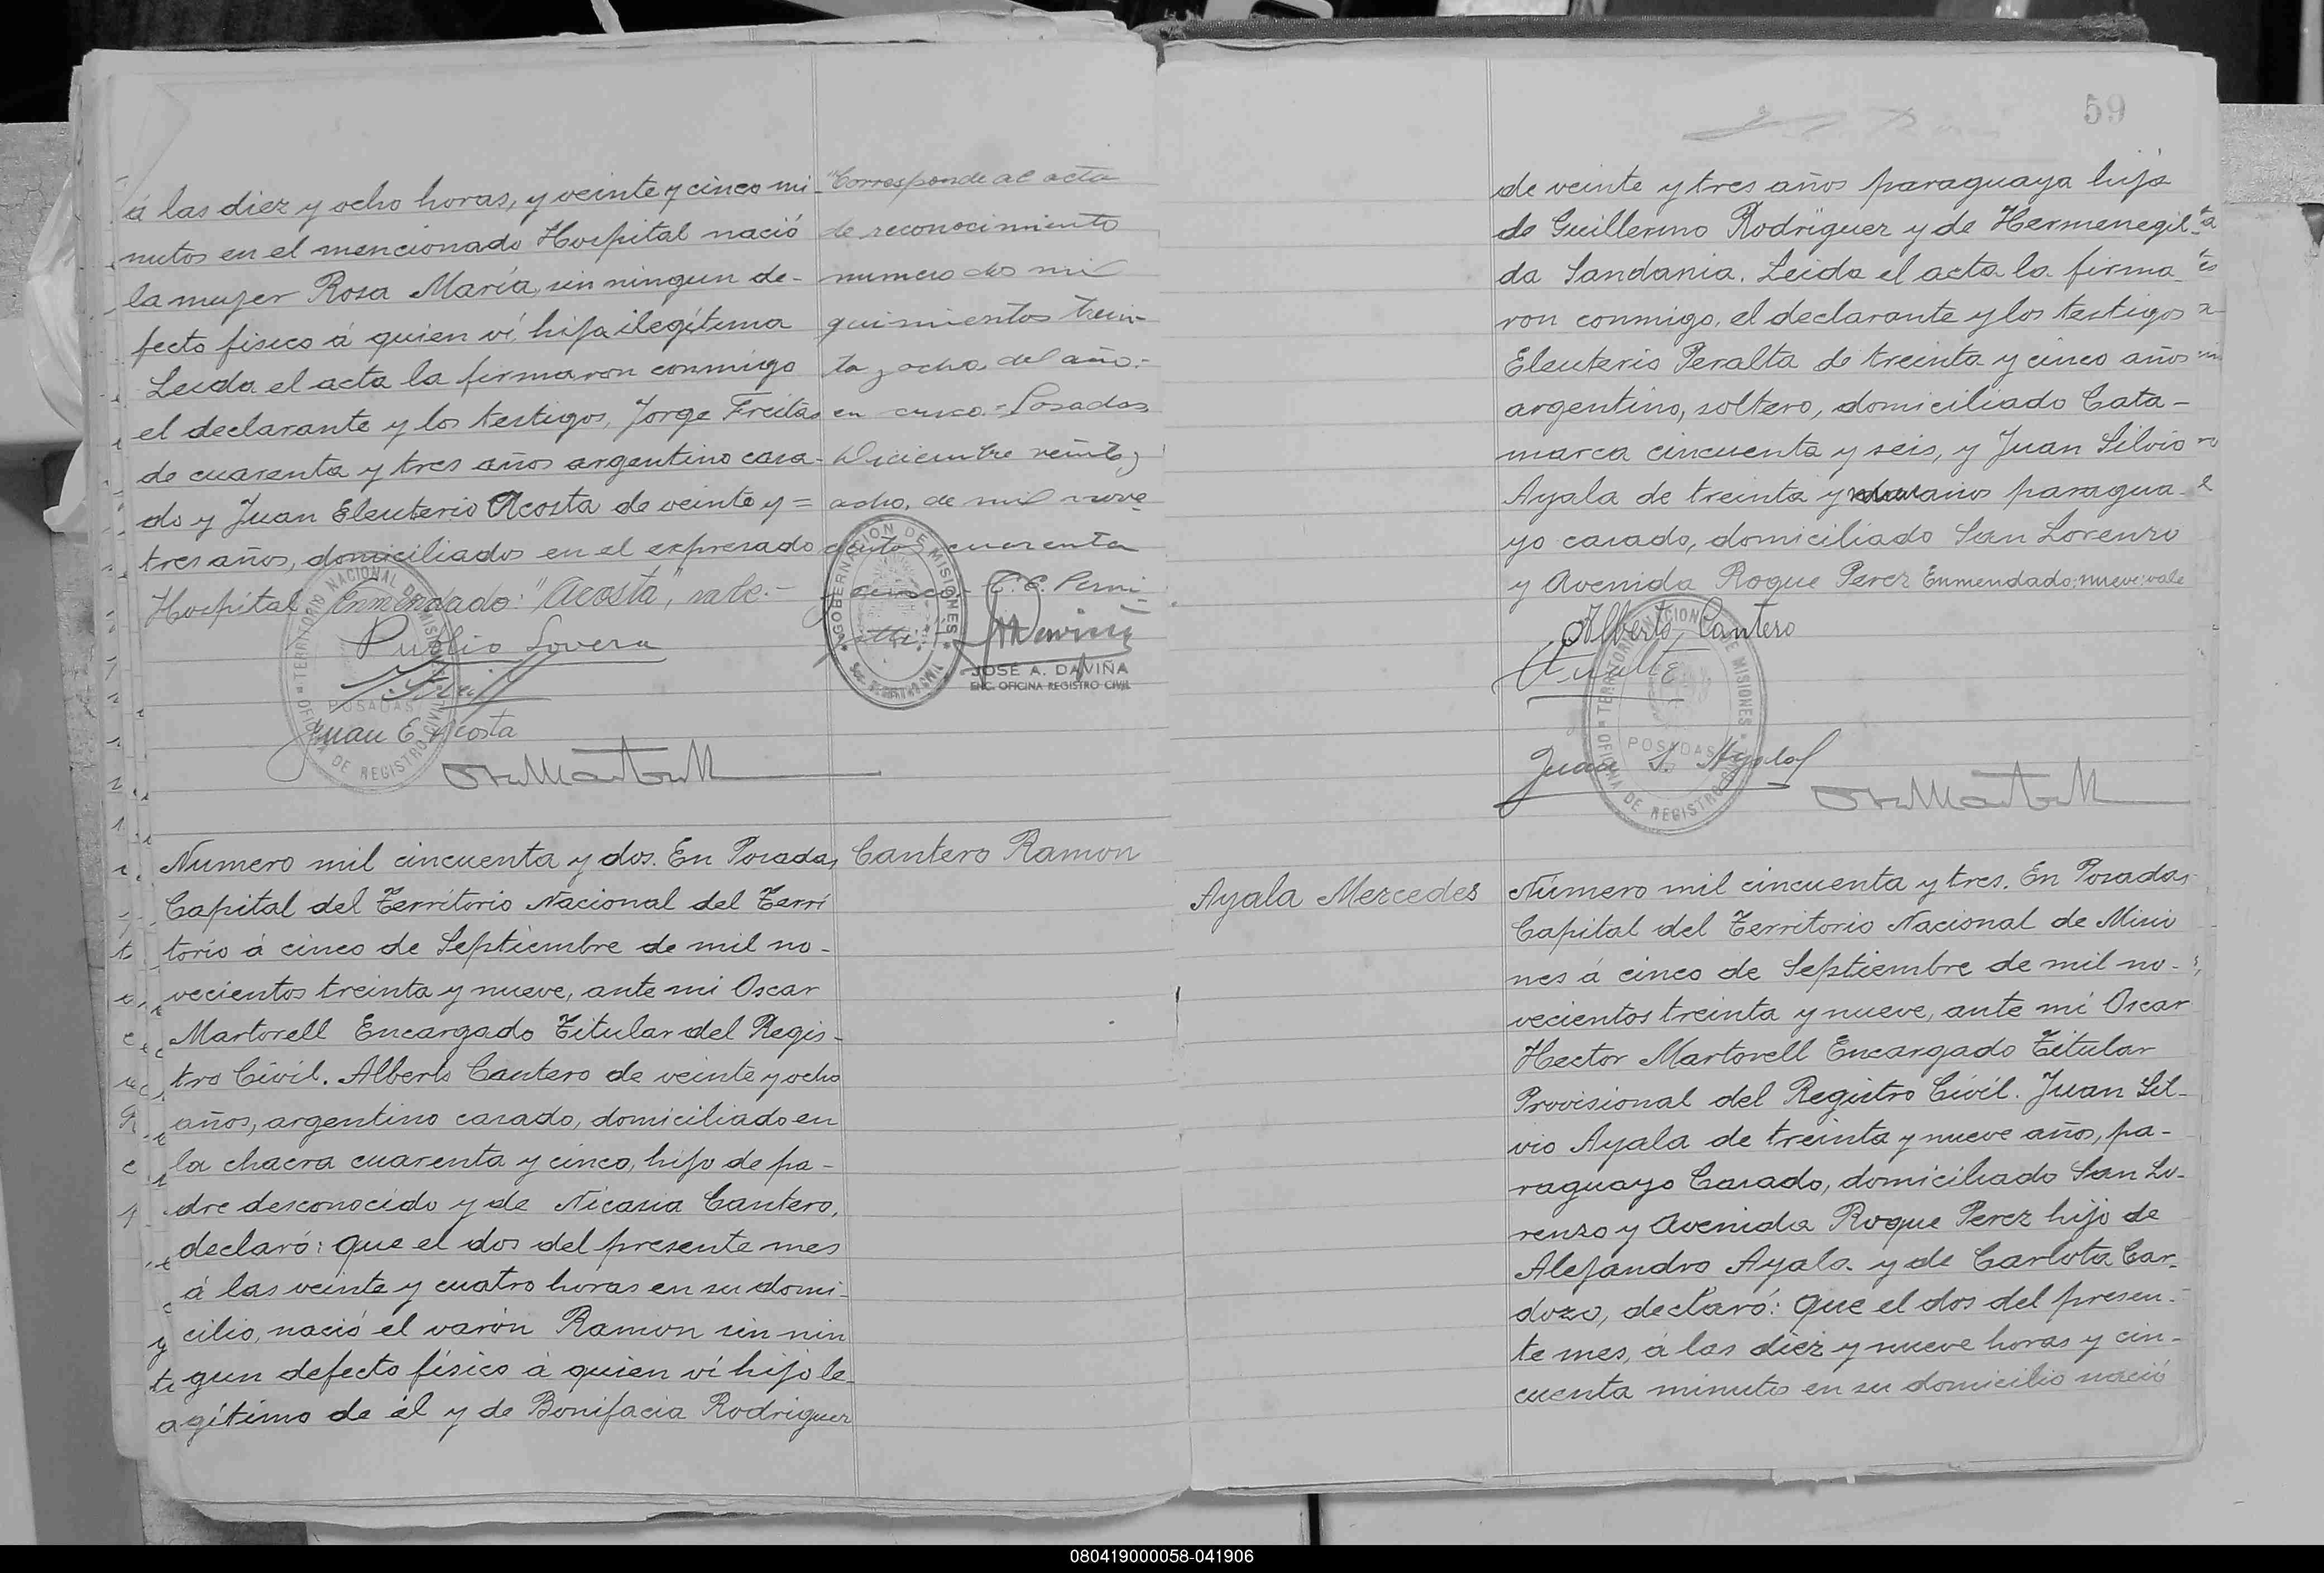 á las diez y ocho horas, y veinte y cinco mi-
nutos en el mencionado Hospital nació
la mujer Rosa María, sin ningun de-
fecto físico á quien ví, hija ilegítima
Leida el acta la firmaron conmigo
el declarante y los testigos, Jorge Freitas
de cuarenta y tres años argentino casa-
do y Juan Eleuterio Acosta de veinte y =
tres años, domiciliados en el expresado
Hospital Enmendado: "Acosta", vale.-
Publio Lovera
Juan E. Acosta
TERRITORIO NACIONAL DE MISIONES
POSADAS
OFICINA DE REGISTRO CIVIL
"Corresponde al acta
de reconocimiento
numero dos mil
quinientos trein-
ta y ocho del año:
en curso.- Posadas
Diciembre veinte y
ocho, de mil nove-
cientos cuarenta
y cinco.-
GOBERNACION DE MISIONES
JOSÉ A. DAVIÑA
ENC. OFICINA REGISTRO CIVIL
Numero mil cincuenta y dos. En Posadas
Capital del Territorio Nacional del Terri
torio á cinco de Septiembre de mil no-
vecientos treinta y nueve, ante mi Oscar
Martorell Encargado Titular del Regis-
tro Civil. Alberto Cantero de veinte y ocho
años, argentino casado, domiciliado en
la chacra cuarenta y cinco, hijo de pa-
dre desconocido y de Nicasia Cantero,
declaró: que el dos del presente mes
á las veinte y cuatro horas en su domi-
cilio, nació el varón Ramon sin nin
gun defecto físico á quien ví hijo le-
gítimo de él y de Bonifacia Rodriguez
Cantero Ramon
59
de veinte y tres años paraguaya hija
de Guillermo Rodríguez y de Hermenegil-
da Sandania. Leida el acta la firma-
ron conmigo, el declarante y los testigos
Eleuterio Peralta de treinta y cinco años
argentino, soltero, domiciliado Cata-
marca cincuenta y seis, y Juan Silvio
Ayala de treinta y nueve años paragua-
yo casado, domiciliado San Lorenzo
y Avenida Roque Perez Enmendado: nueve: vale
Alberto Cantero
Juan S. Ayala
TERRITORIO NACIONAL DE MISIONES
POSADAS
OFICINA DE REGISTRO CIVIL
Ayala Mercedes
Número mil cincuenta y tres. En Posadas
Capital del Territorio Nacional de Misio
nes á cinco de Septiembre de mil no-
vecientos treinta y nueve, ante mi Oscar
Hector Martorell Encargado Titular
Provisional del Registro Civil. Juan Sil-
vio Ayala de treinta y nueve años, pa-
raguayo Casado, domiciliado San Lo-
renzo y Avenida Roque Perez hijo de
Alejandro Ayala y de Carlota Car-
dozo, declaró: que el dos del presen-
te mes, á las diez y nueve horas y cin-
cuenta minutos en su domicilio nació
080419000058-041906